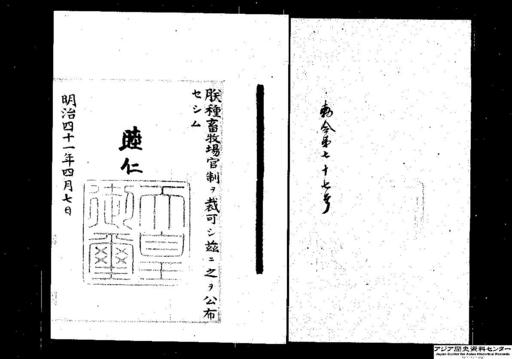 勅令第七十七号
朕種畜牧場官制ヲ裁可シ茲ニ之ヲ公布
セシム
睦仁
天皇
御璽
明治四十一年四月七日
アジア歴史資料センター
Japan Center for Asian Historical Records